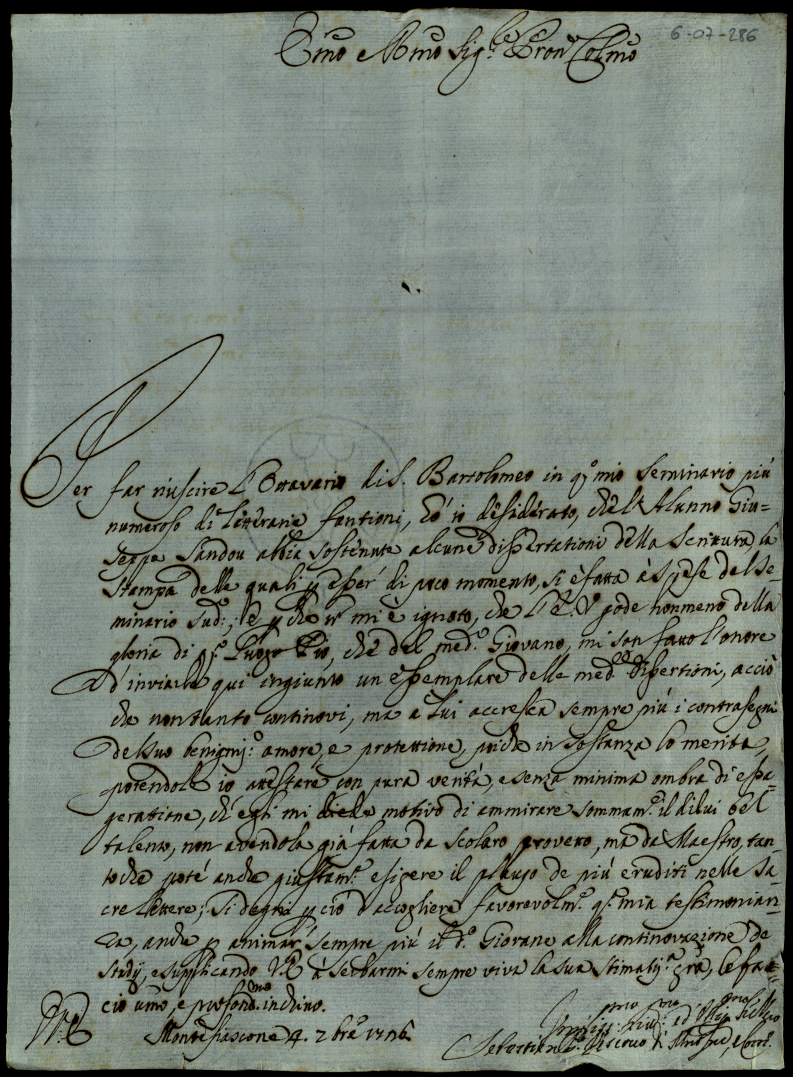 6-07-286
Emo e Rmo Sig.re Pron Colmo
Per far riuscire l'Ottavario di S. Bartolomeo in q.o mio Seminario più
numeroso di letterarie funtioni, hò io desiderato, che l'Alunno Giu=
seppe Sandou abbia sostenute alcune dissertationi della Scrittura, la
stampa delle quali p esser di poco momento, si è fatta à spese del Se=
minario Sud.o; e p che non mi è ignoto, che l'E. V. gode nonmeno della
gloria di q.o Luogo Pio, che del med.o Giovano, mi son fatto l'onore
d'inviarle qui ingiunto un essemplare delle med.e dissertioni, acciò
che non tanto continovi, ma a Lui accresca sempre più i contrasegni
del suo benignis.o amore, e protettione, poiche in sostanza lo merita,
potendole io attestare con pura verità, e senza minima ombra di essa=
geratione, ch'egli mi diede motivo di ammirare sommam.e il di lui bel
talento, non avendola già fatta da scolaro provetto, ma da Maestro, tan=
toche potè anche giustam.e esigere il plauso de più eruditi nelle sa=
cre lettere; Si degni p ciò d'accogliere favorevolm.e q.a mia testimonian=
za, anche p animar sempre più il d.o Giovane alla continovazione de
studij, e supplicando V.E. à serbarmi sempre viva la sua stimatis.a grã, le fac=
cio umo, e profondmo inchino.
V. E.
Montefiascone 4. 7bre 1716
Sebastiano Vescovo di